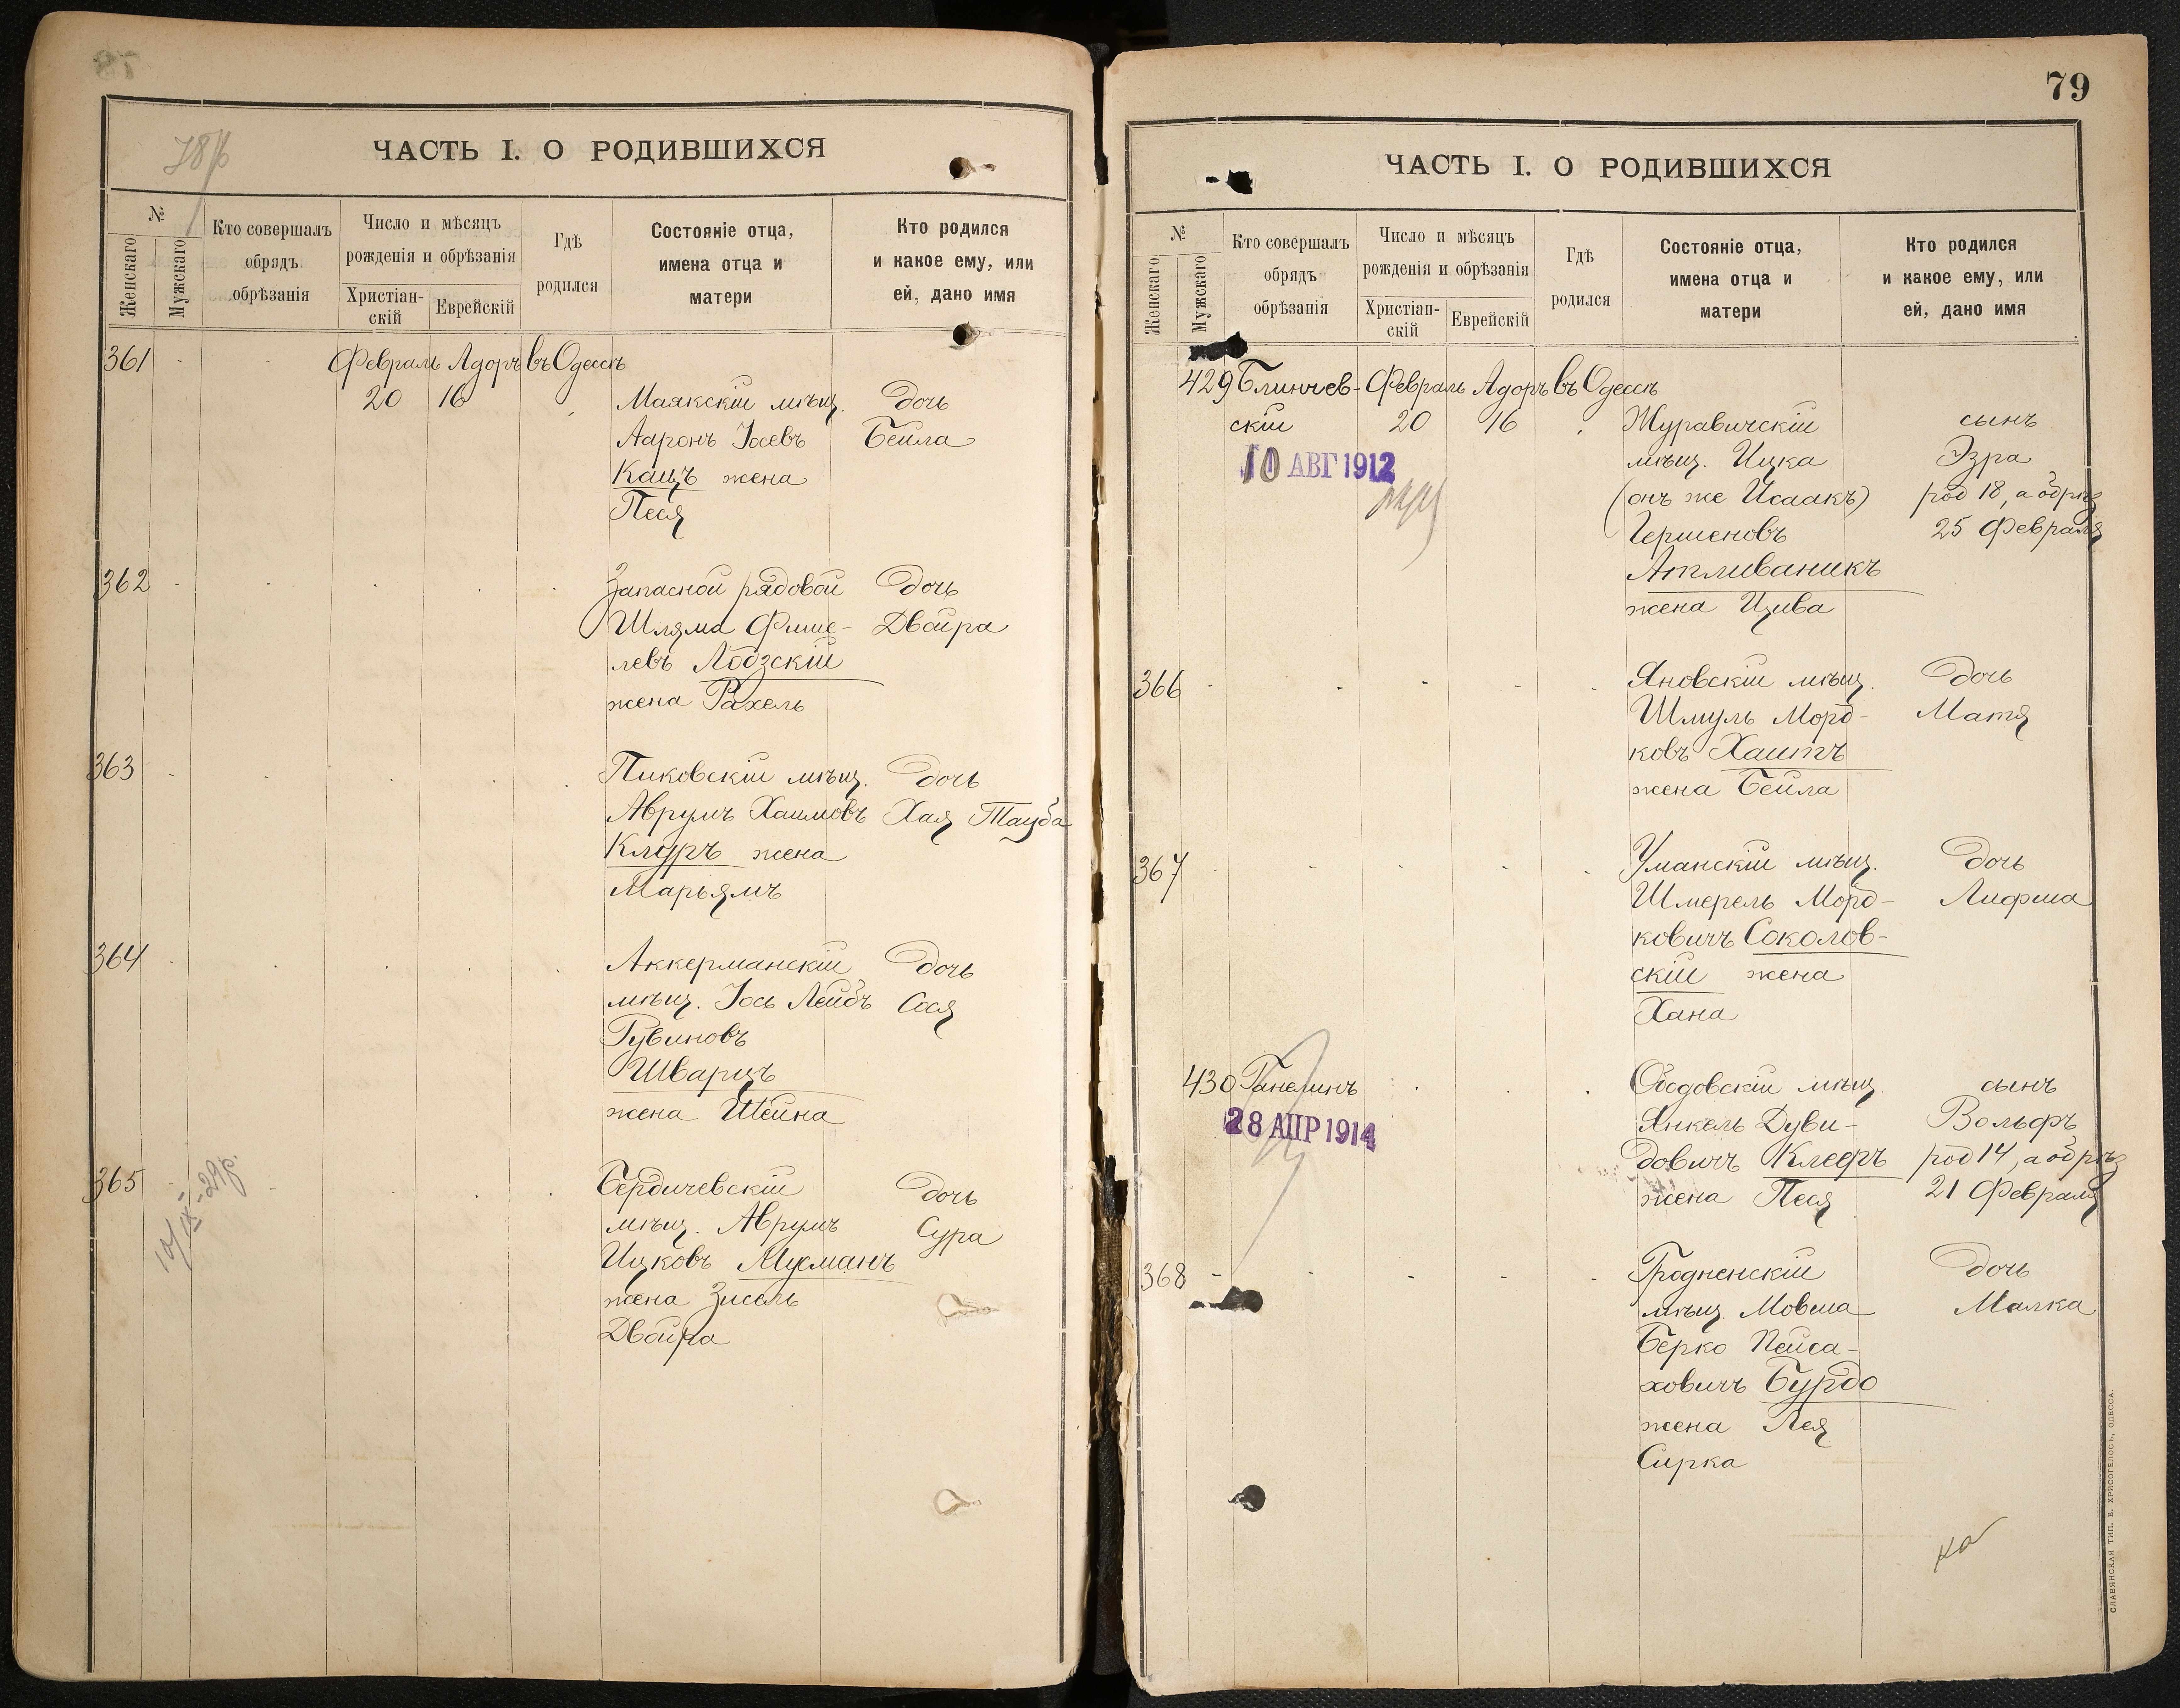 78
78
ЧАСТЬ I. О РОДИВШИХСЯ
№
Женскаго
Мужскаго
Кто совершалъ
обрядъ
обрѣзанія
Число и мѣсяцъ
рожденія и обрѣзанія
Христіан-
скій
Еврейскій
Гдѣ
родился
Состояніе отца,
имена отца и
матери
Кто родился
и какое ему, или
ей, дано имя
361 Февраль Адоръ въ Одессѣ
20 16 Маякскій мѣщ. Дочь
Ааронъ Іосевъ Бейла
Кацъ жена
Песя
362 Запасной рядовой Дочь
Шляма Фише- Двойра
левъ Лодзскій
жена Рахель
363 Пиковскій мѣщ. Дочь
Аврумъ Хаимовъ Хая Тауба
Клугръ жена
Марьямъ
364 Аккерманскій Дочь
мѣщ. Іось Лейбъ Сося
Рувиновъ
Шварцъ
жена Шейна
365 Бердичевскій Дочь
мѣщ. Аврумъ Сура
Ицковъ Мусманъ
жена Зисель
Двойра
10/IX-29г.
79
ЧАСТЬ I. О РОДИВШИХСЯ
№
Женскаго
Мужскаго
Кто совершалъ
обрядъ
обрѣзанія
Число и мѣсяцъ
рожденія и обрѣзанія
Христіан-
скій
Еврейскій
Гдѣ
родился
Состояніе отца,
имена отца и
матери
Кто родился
и какое ему, или
ей, дано имя
429 Блинчев- Февраль Адоръ въ Одессѣ
скій 20 16 Журавичскій сынъ
10 АВГ 1912
мѣщ. Ицка Эзра
(онъ же Исаакъ) род 18, а обрѣз
Гершеновъ 25 Февраля
Атливаникъ
жена Цива
366 Яновскій мѣщ. Дочь
Шмуль Морд- Матя
ковъ Хаитъ
жена Бейла
367 Уманскій мѣщ. Дочь
Шмерель Морд- Лифша
ковичъ Соколов-
скій жена
Хана
430 Ганелинъ Ободовскій мѣщ. сынъ
28 АПР 1914
Янкель Дуви- Вольфъ
довичъ Клеръ род 14, а обрѣз
жена Песя 21 Февраля
368 Гродненскій Дочь
мѣщ. Мовша Малка
Берко Пейса-
ховичъ Бурдо
жена Лея
Сирка
СЛАВЯНСКАЯ ТИП. Е. ХРИСОГЕЛОСЪ, ОДЕССА.